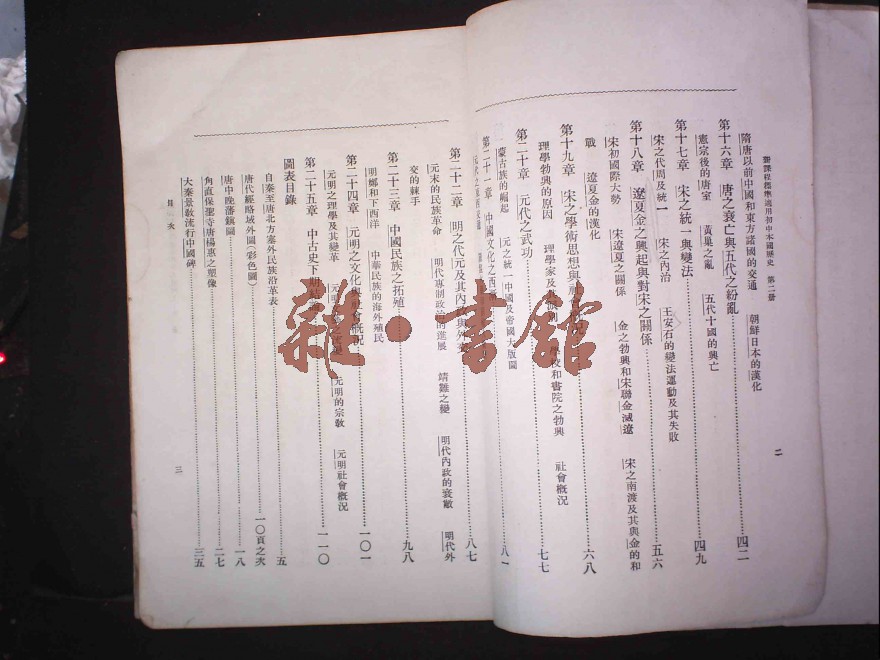 新課程標準適用初中本國歷史 第二冊
二
隋唐以前中國和東方諸國的交通 朝鮮日本的漢化
第十六章 唐之衰亡與五代之紛亂 四二
憲宗後的唐室 黃巢之亂 五代十國的興亡
第十七章 宋之統一與變法 四九
宋之代周及統一 宋之內治 王安石的變法運動及其失敗
第十八章 遼夏金之興起與對宋之關係 五六
宋初國際大勢 宋遼夏之關係 金之勃興和宋聯金滅遼 宋之南渡及其與金的和
戰 遼夏金的漢化
第十九章 宋之學術思想與 六八
理學勃興的原因 理學家及 學校和書院之勃興 社會概況
第二十章 元代之武功 七七
蒙古族的崛起 元之統一中國及帝國大版圖
第二十一章 中國文化之西 八一
第二十二章 明之代元及其內 八七
元末的民族革命 明代專制政治的進展 靖難之變 明代內政的衰敝 明代外
交的棘手
第二十三章 中國民族之拓殖 九八
明鄭和下西洋 中華民族的海外殖民
第二十四章 元明之文化與社會概況 一〇一
元明之理學及其變革 元明的宗教 元明社會概況
第二十五章 中古史下期 一一〇
圖表目錄
自秦至唐北方塞外民族沿革表 五
唐代經略域外圖(彩色圖) 一〇頁之次
唐中晚藩鎮圖 一八
角直保聖寺唐楊惠之塑像 二七
大秦景教流行中國碑 三五
目次
三
雜·書館